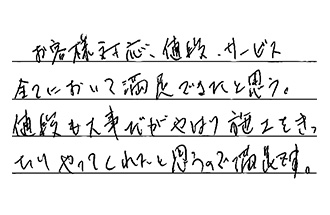 お客様対応、値段、サービス
全てにおいて満足できたと思う。
値段も大事だがやはり施工をきっ
ちりやってくれたと思うので満足です。